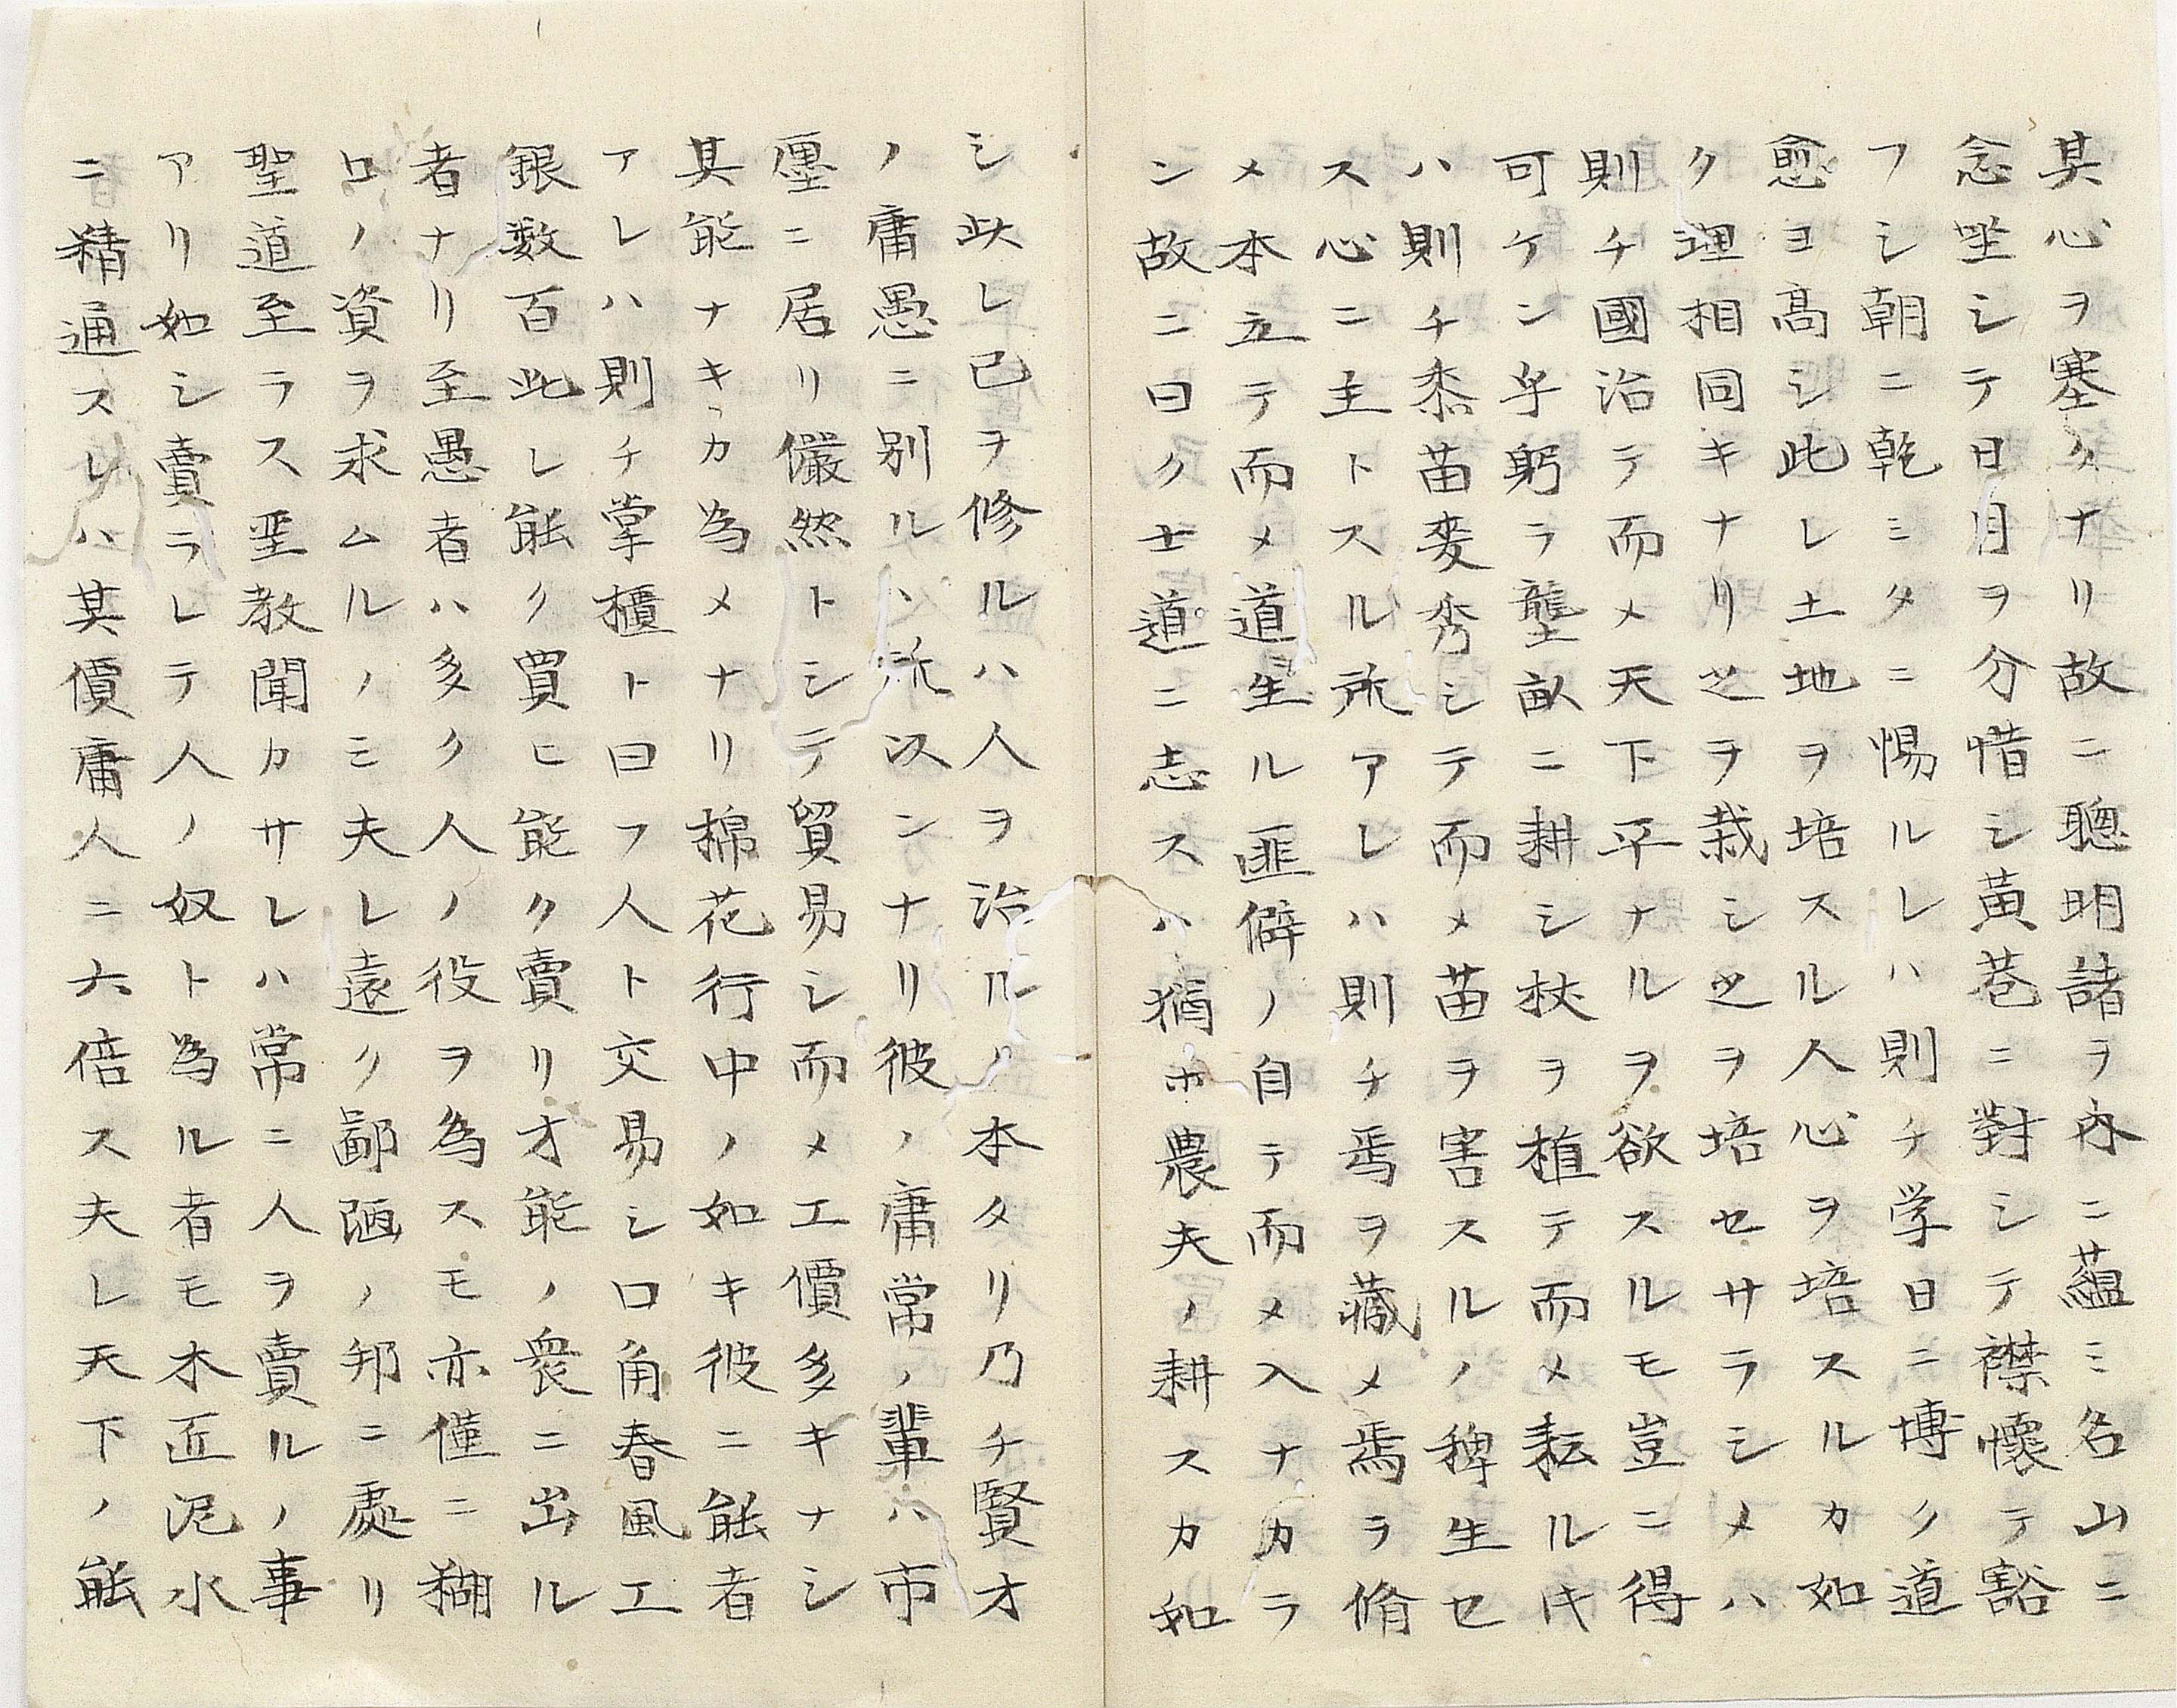 其心ヲ塞クナリ故ニ聰明諸ヲ内ニ蘊ミ名山ニ
念坐シテ日月ヲ分惜シ黄巷ニ對シテ襟懐テ豁
フシ朝ニ乾ミタニ惕ルレハ則チ学日ニ博ク道
愈ヨ高シ此レ土地ヲ培スル人心ヲ培スルカ如
ク理相同キナリ之ヲ栽シ之ヲ培セサラシメハ
則チ國治テ而メ天下平ナルヲ欲スルモ豈ニ得
可ケン乎躬ラ壟畝ニ耕シ杖ヲ植テ而メ耘ルキ
ハ則チ黍苗麦秀シテ而メ苗ヲ害スルノ稗生セ
ス心ニ主トスル所アレハ則チ焉ヲ藏メ焉ラ脩
メ本立テ而メ道生ル匪僻ノ自テ而メ入ナカラ
ン故ニ曰ク士道ニ志スハ猶ホ農夫ノ耕スカ如
シ此レ己ヲ修ルハ人ヲ治ルノ本タリ乃チ賢才
ノ庸愚ニ別ルヽ所以ンナリ彼ノ庸常ノ輩ハ市
厘ニ居リ儼然トシテ貿易シ而メ工價多キナシ
其能ナキカ為メナリ棉花行中ノ如キ彼ニ能者
アレハ則チ掌櫃ト曰フ人ト交易シ口角春風工
銀数百此レ能ク買ヒ能ク賣リ才能ノ衆ニ出ル
者ナリ至愚者ハ多ク人ノ役ヲ為スモ亦僅ニ糊
口ノ資ヲ求ムルノミ夫レ遠ク鄙陋ノ邦ニ處リ
聖道至ラス聖教聞カサレハ常ニ人ヲ賣ルノ事
アリ如シ賣ラレテ人ノ奴ト為ル者モ木匠泥水
ニ精通スレハ其價庸人ニ六倍ス夫レ天下ノ能